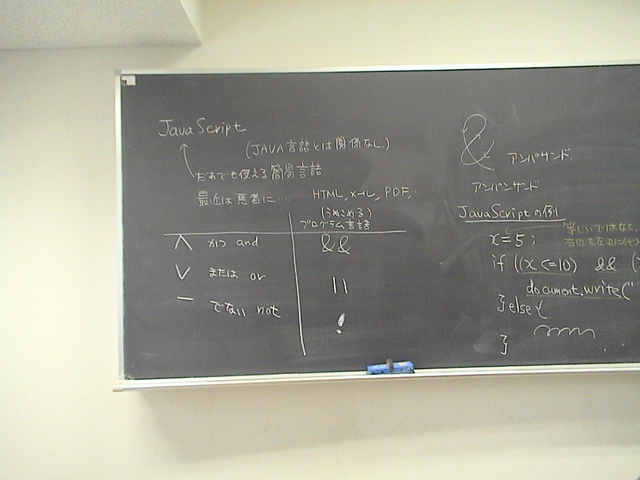 JavaScript
(JAVA言語とは関係なし)
だれでも使える簡易言語
最近は悪者に… HTML, メール, PDF, ..
(うめこめる)
プログラム言語
∧ かつ and &&
∨ または or ||
― でない not !
&
アンパサンド
アンパサンド
JavaScriptの例
x=5;
"等しい"ではなく
右辺を左辺に代入
if ((x <=10) && (
document.write("
}else{
}